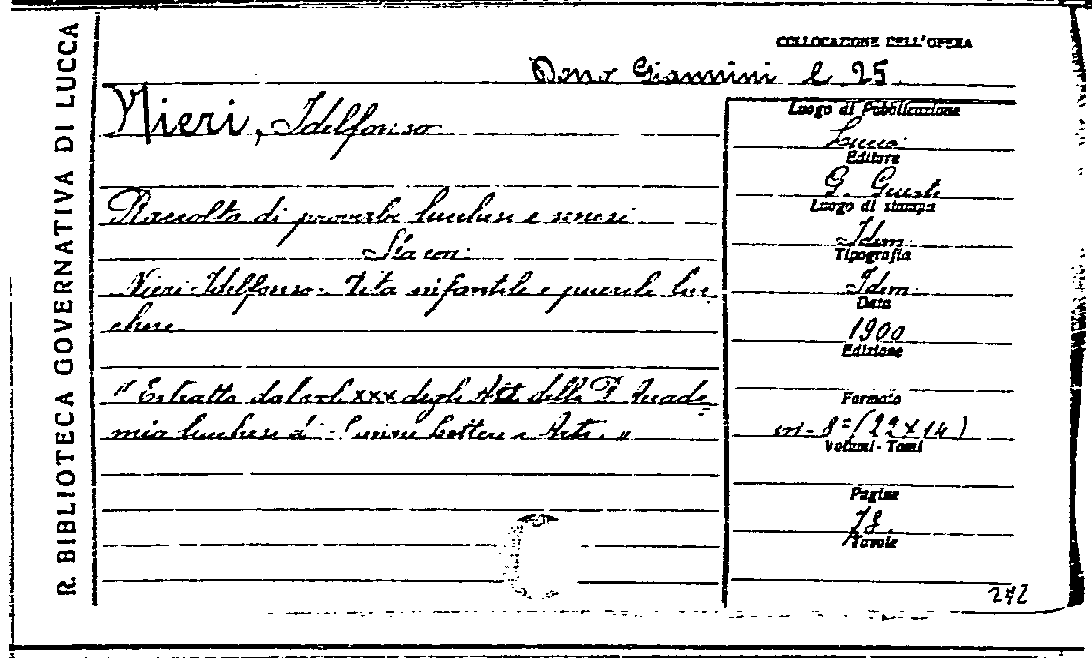 R. BIBLIOTECA GOVERNATIVA DI LUCCA
COLLOCAZIONE DELL'OPERA
Dono Giannini l 25
Nieri, Idelfonso
Raccolta di proverbi lucchesi e senesi
Sta con:
Nieri Idelfonso - Vita infantile e puerile luc
chese
"Estratto dal vol. XXX degli Atti della R. Accade=
mia lucchese di Scienze Lettere e Arti."
Luogo di Pubblicazione
Lucca
Editore
G. Giusti
Luogo di stampa
Idem
Tipografia
Idem
Data
1900
Edizione
Formato
in-8° (22x14)
Volumi - Tomi
Pagine
Tavole
242